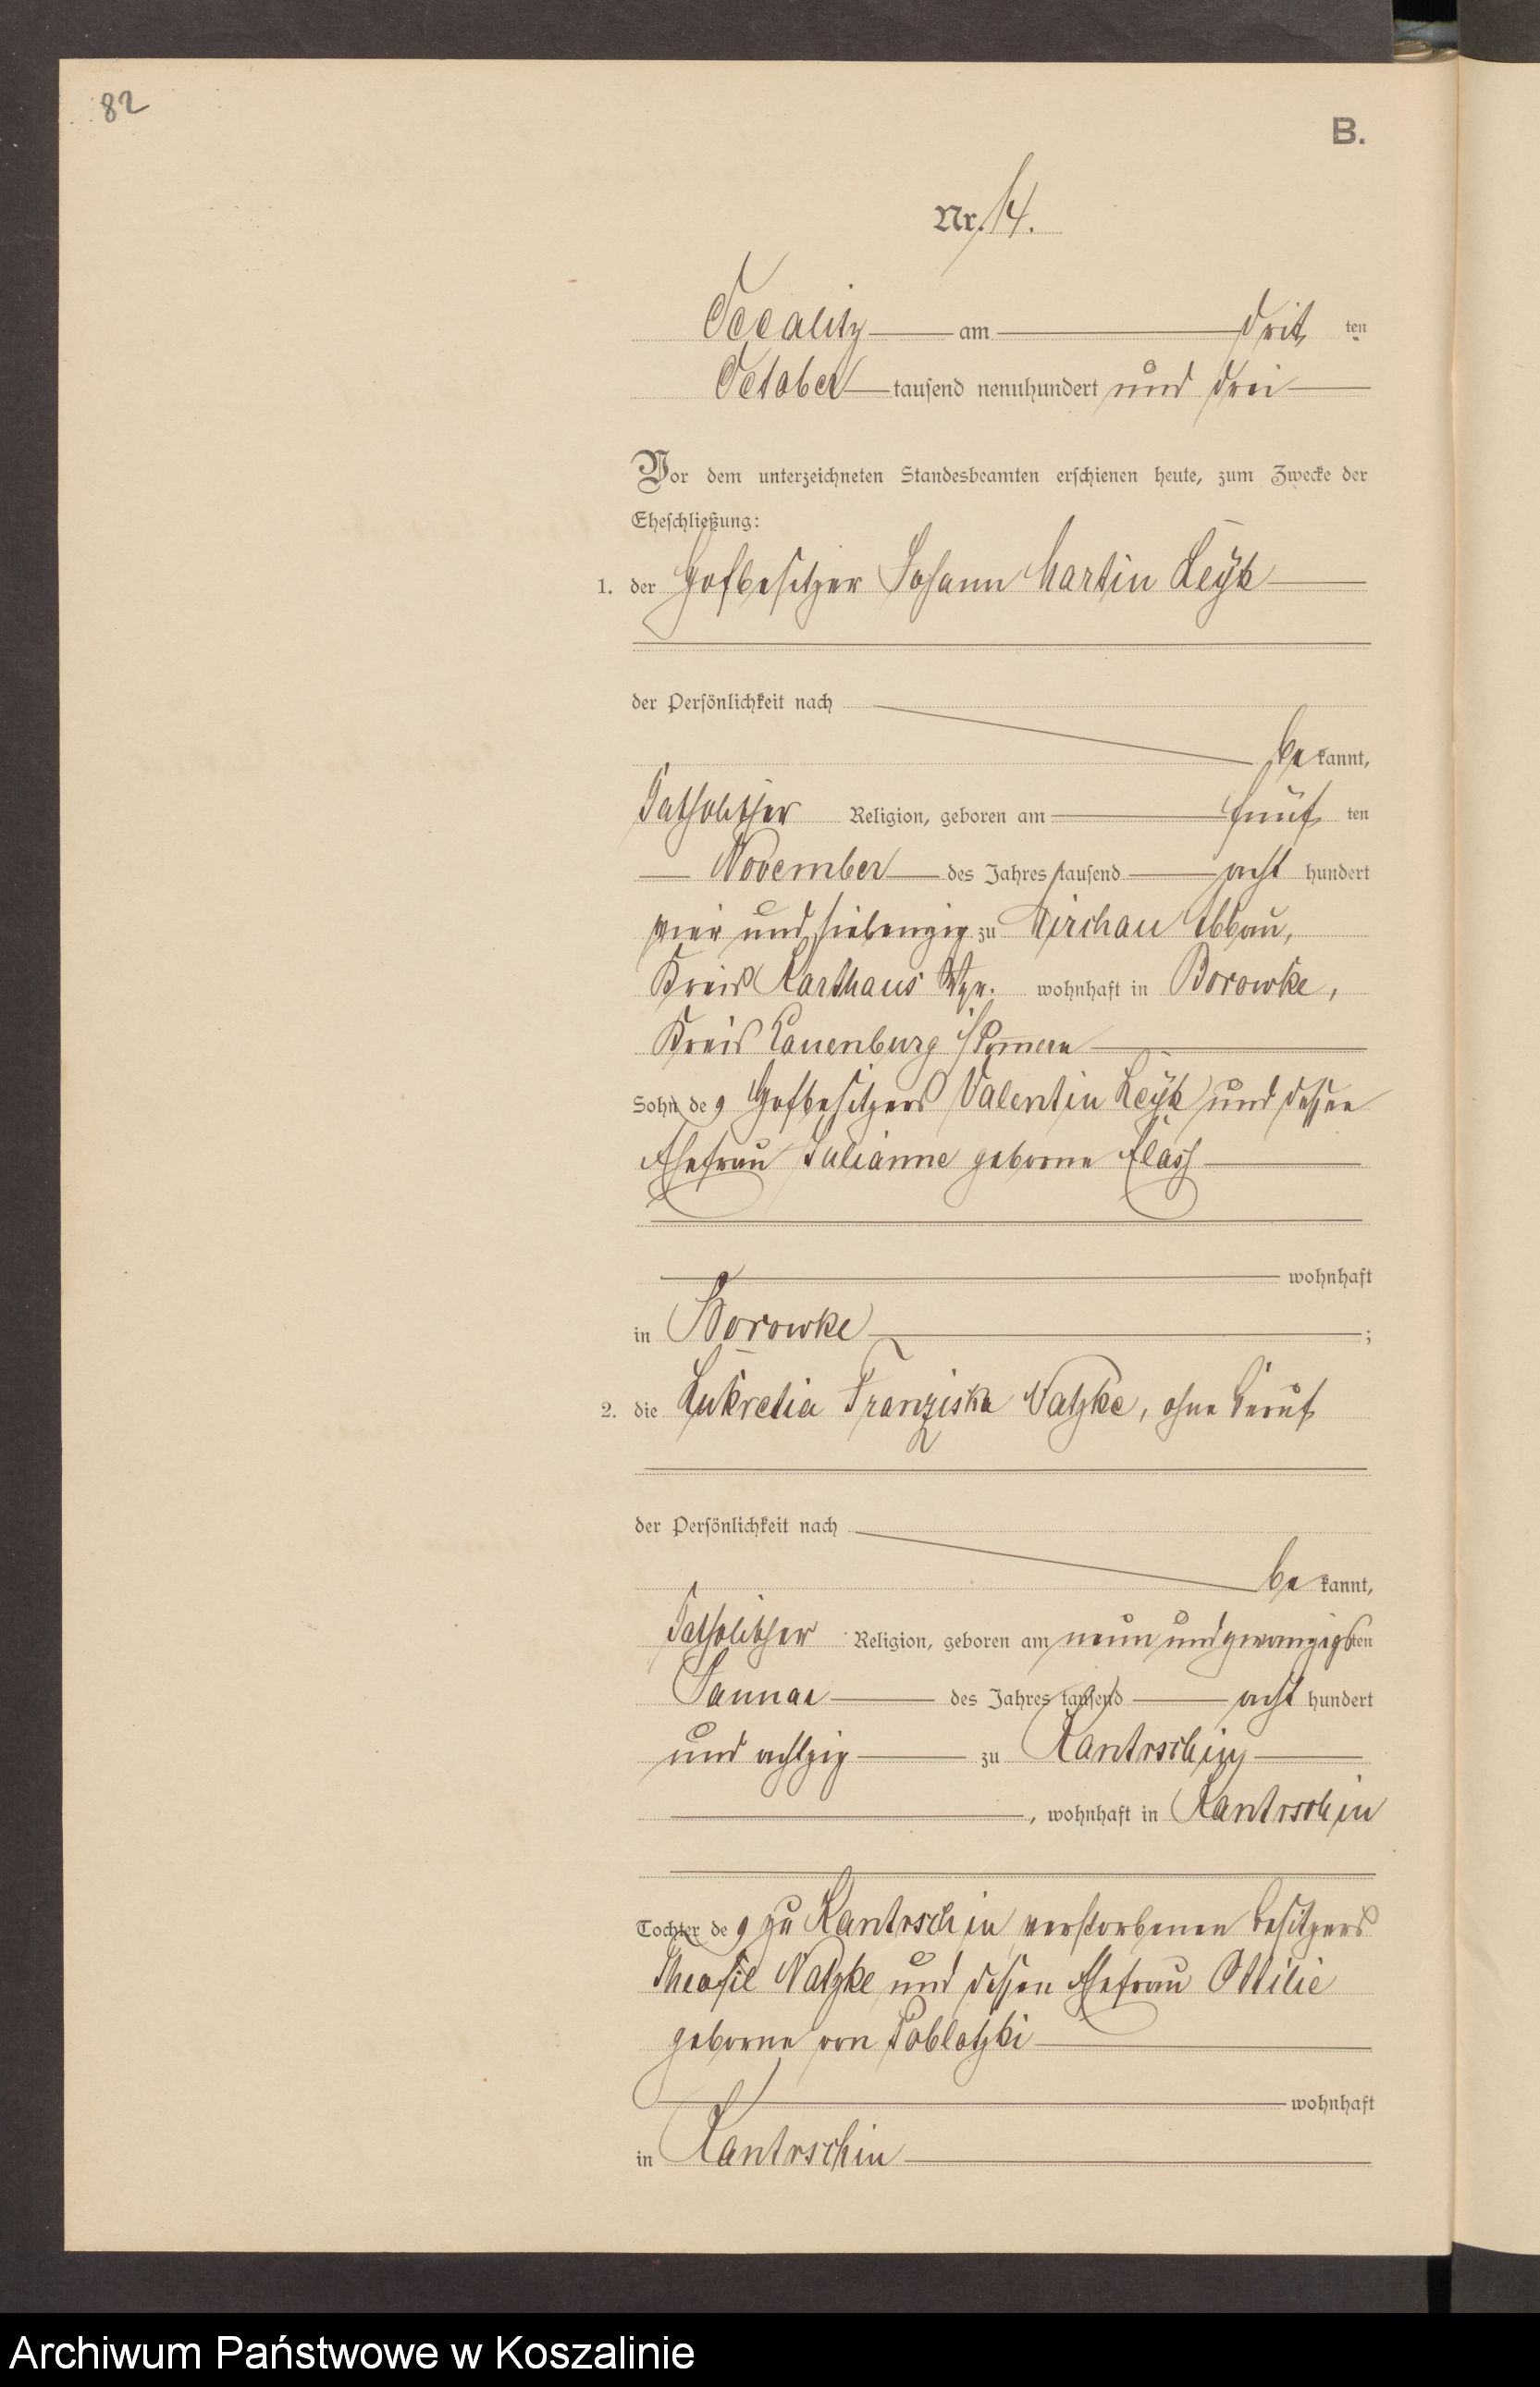 82
B.
Nr. 14.
Occalitz am drit ten
October tausend neunhundert und drei
Vor dem unterzeichneten Standesbeamten erschienen heute, zum Zwecke der
Eheschließung:
1. der Hofbesitzer Johann Martin Leyk
der Persönlichkeit nach
be kannt,
katholischer Religion, geboren am fünf ten
November des Jahres tausend acht hundert
vier und siebenzig zu Mirchau Abbau,
Kreis Karthaus Wpr. wohnhaft in Borowke,
Kreis Lauenburg i/Pommern
Sohn des Hofbesitzers Valentin Leyk und dessen
Ehefrau Julianne geborne
wohnhaft
in Borowke ;
2. die Lukretia Franziska Natzke, ohne Beruf
der Persönlichkeit nach
be kannt,
katholischer Religion, geboren am neun und zwanzigsten
Januar des Jahres tausend acht hundert
und achtzig zu Kantrschin
, wohnhaft in Kantrschin
Tochter des zu Kantrschin verstorbenen Besitzers
Theofil Natzke und dessen Ehefrau Ottilie
geborne von Pablotzki
wohnhaft
in Kantrschin
Archiwum Państwowe w Koszalinie